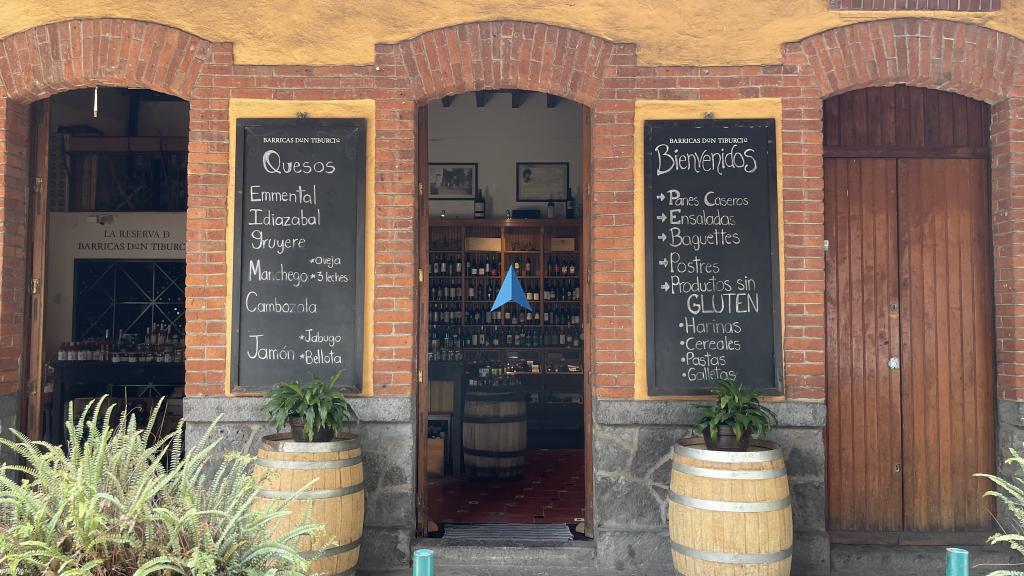 LA RESERVA D
BARRICAS DON TIBURC
BARRICAS DON TIBURCIO
Quesos
Emmental
Idiazabal
gruyere
Manchego *oveja
*3 leches
Cambozola
Jamón *Jabugo
*Bellota
BARRICAS DON TIBURCIO
Bienvenidos
→Panes Caseros
→Ensaladas
→Baguettes
→Postres
→Productos sin
GLUTEN
•Harinas
•Cereales
•Pastas
•Galletas